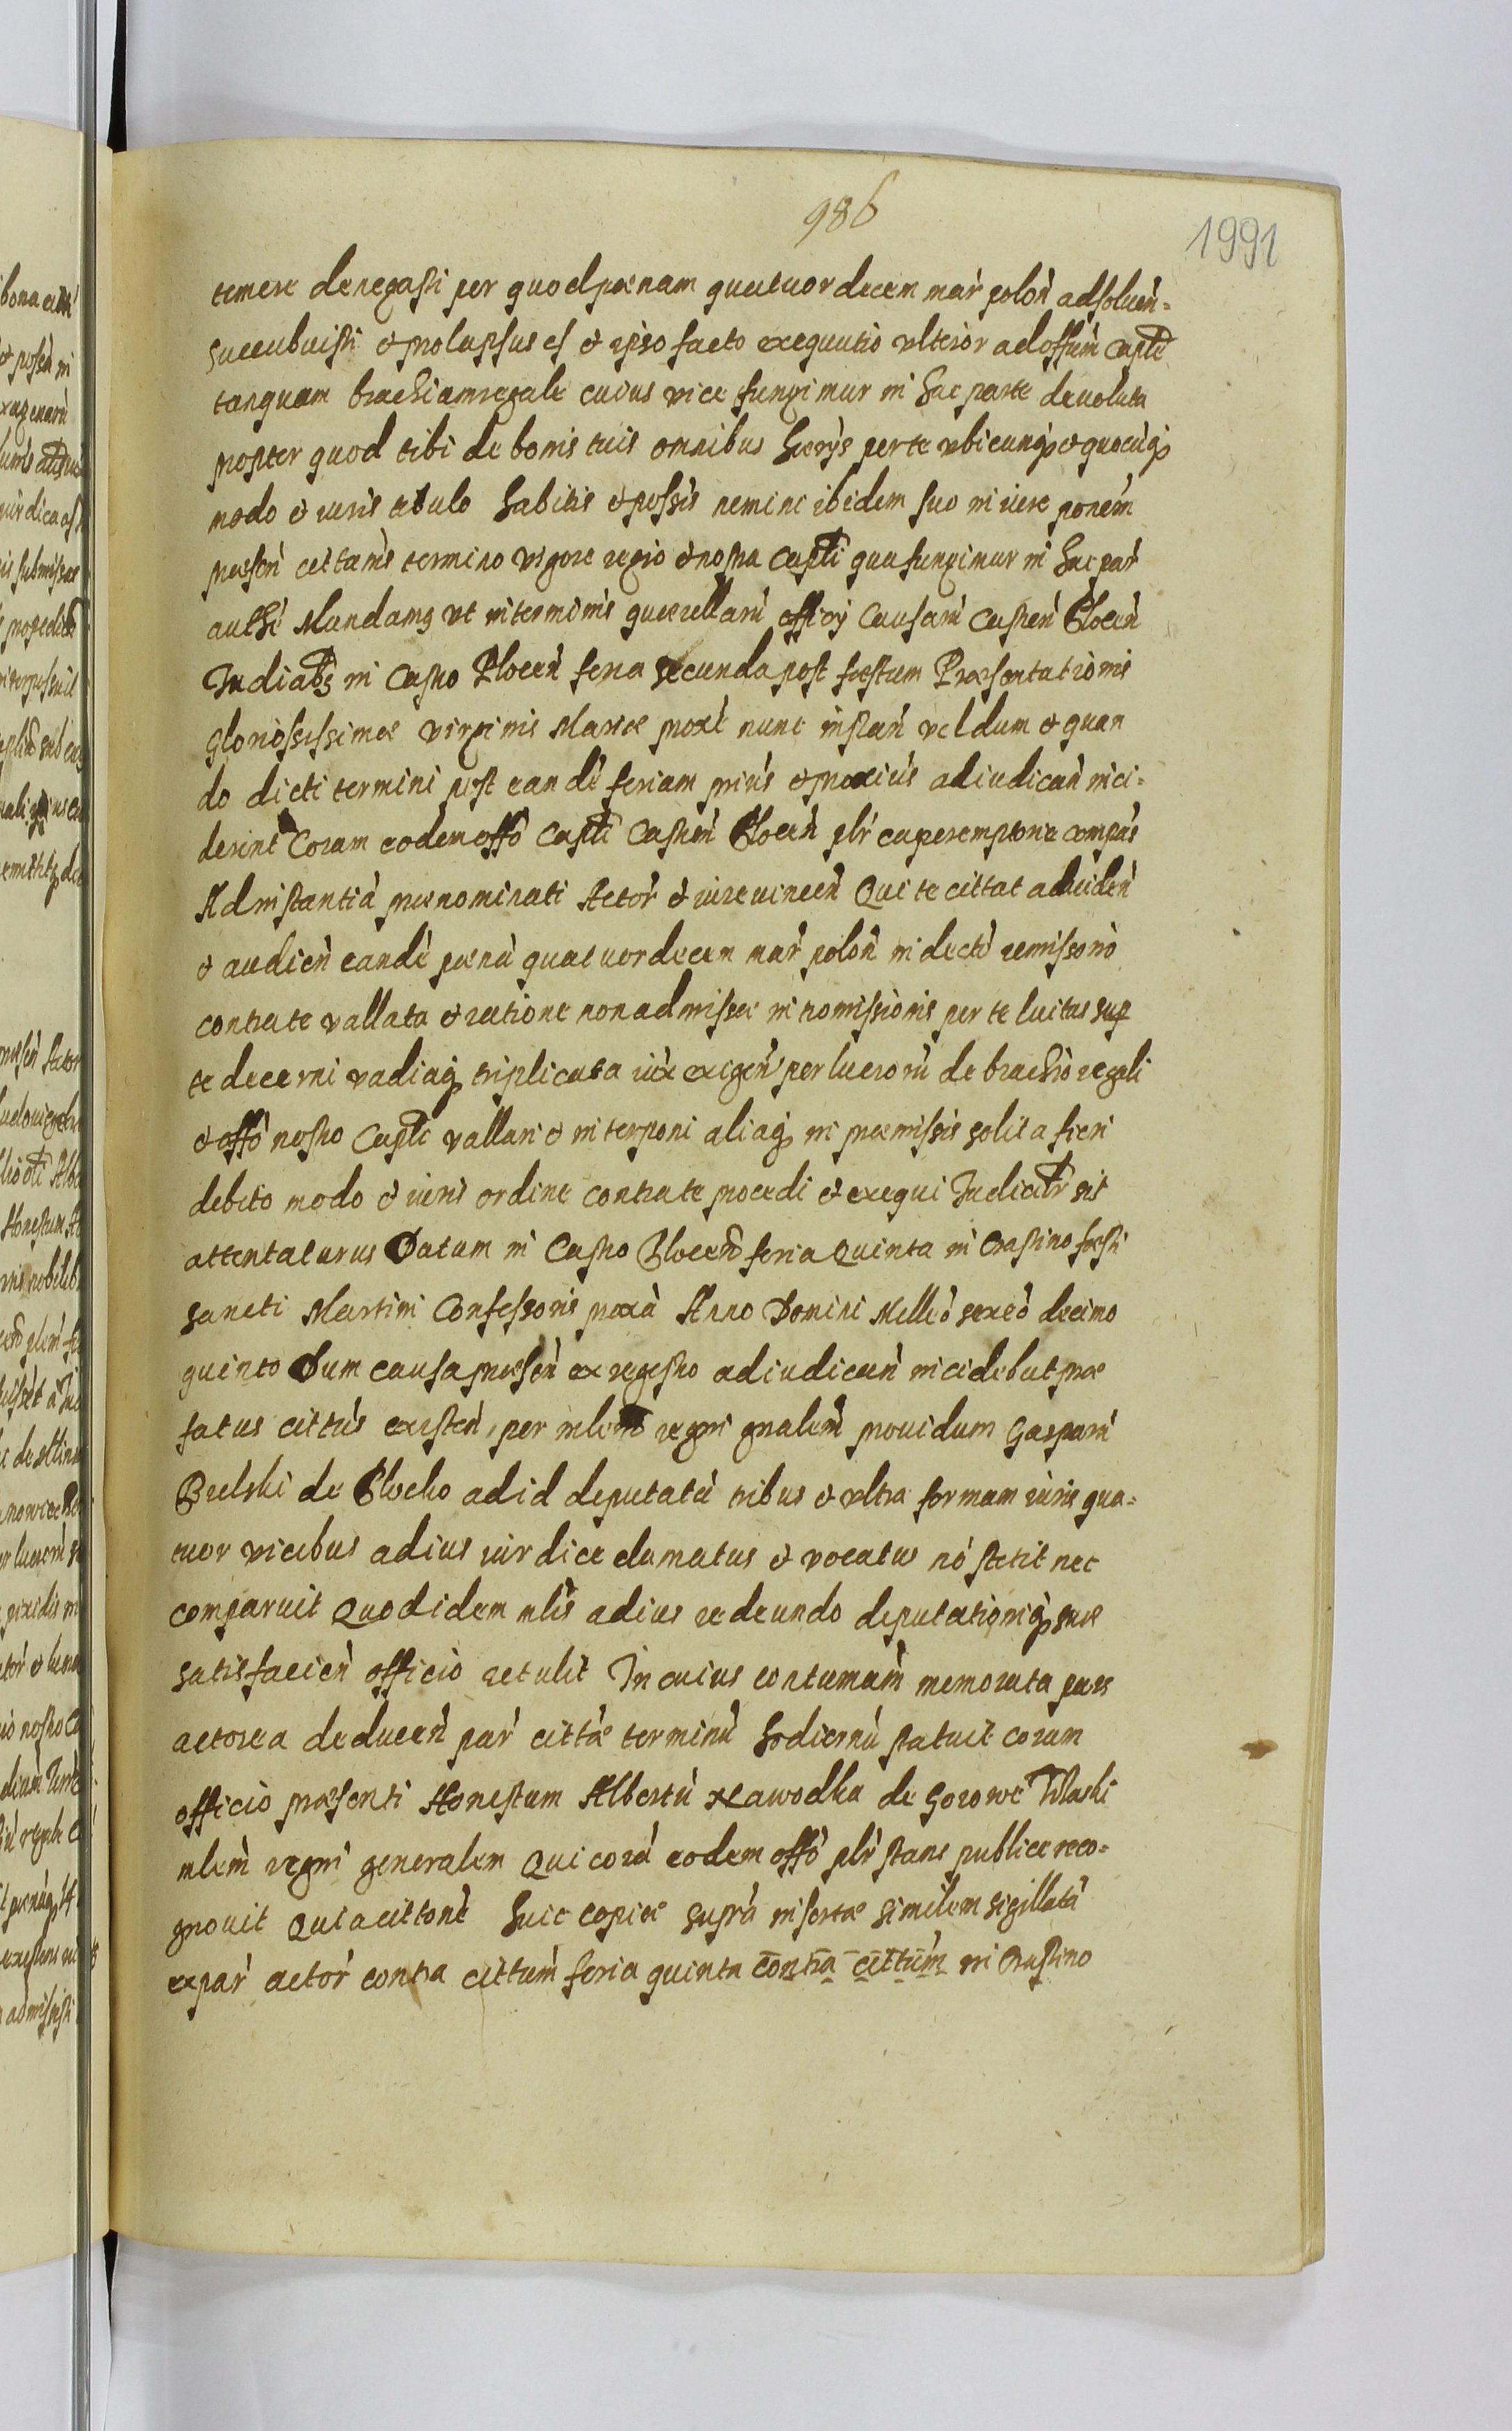 986
1991
temere denegasti per quod pœnam quatuordecem mar̃ polon̄ adsoluen̄=
succubuisti & prolapsus es & ipso facto exequutio ulterior ad offūm captī
tanquam brachiam regale cuius vice fungimur in hac parte devoluta
propter quod tibi de bonis tuis omnibus hærijs per te ubicunq; & quocūq;
modo & iuris titulo habitis & possis nemini ibidem suo in iure
præsen̄ cittān̄s termino vigore regio & nostra captī qua fungimur in hac par̄
auth̄e Mandam9 ut in terminis quærellarū officij causarū castren̄ Plocen̄
Indiabs in Castro Plocen̄ feria secunda post fæstum Præsentationis
gloriosissimæ virginis Mariæ proxè nunc instan̄ vel dum & quan
do dicti termini post eandē feriam prius & proxius adiudicān̄ inci=
derint Coram eodem offō Captī Castren̄ Plocen̄ plr̄ ea peremptoriæ compās
Ad instantiā prænominati Actor̄ & iure vincen̄ Qui te cittat ad uiden̄
& audien̄ eandē pœnā quatuordecem mar̄ polon̄ in decto remissorio
contra te vallata & ratione non admissæ intromissionis per te luitas sup
te decerni vadiaq; triplicata exigen̄ per lucrorū de brachio regali
& offō nostro Captī vallari & interponi aliaq; in præmissis solita fieri
debito modo & iuris ordine contra te procedi & exequi Indicatr̄ sit
attentaturus Datum in Castro Plocen̄ feria Quinta in Crastino fæsti
sancti Martini Confessoris proxā Anno Domini Millēō sexcēō decimo
quinto Dum causa præsen̄ ex regestro adiudicān̄ incidebat præ
fatus cittūs existen̄, per regni gnalem prouidum Gasparū
Bielski de Plocko ad id deputatū tribus & ultra formam iuris qua=
tuor vicibus adius iurdice clamatus & vocatus nō stetit nec
comparuit Quod idem mlīs adius redeundo deputationiq; suæ
satisfacien̄ officio retulit In cuius contumām memorata pars
actorea deducen̄ par̄ cittæ terminū hodiernū statuit coram
officio præsenti Honestum Albertū Xawodka de Gorowe
mlem regni generalem Qui corā eodem offō plr̄ stans publice reco=
gnouit Quia cittonē huic copiæ supra insertæ similem sigillatā
ex par̄ actor̄ contra cittūm feria quinta contra cittūm in Crastino